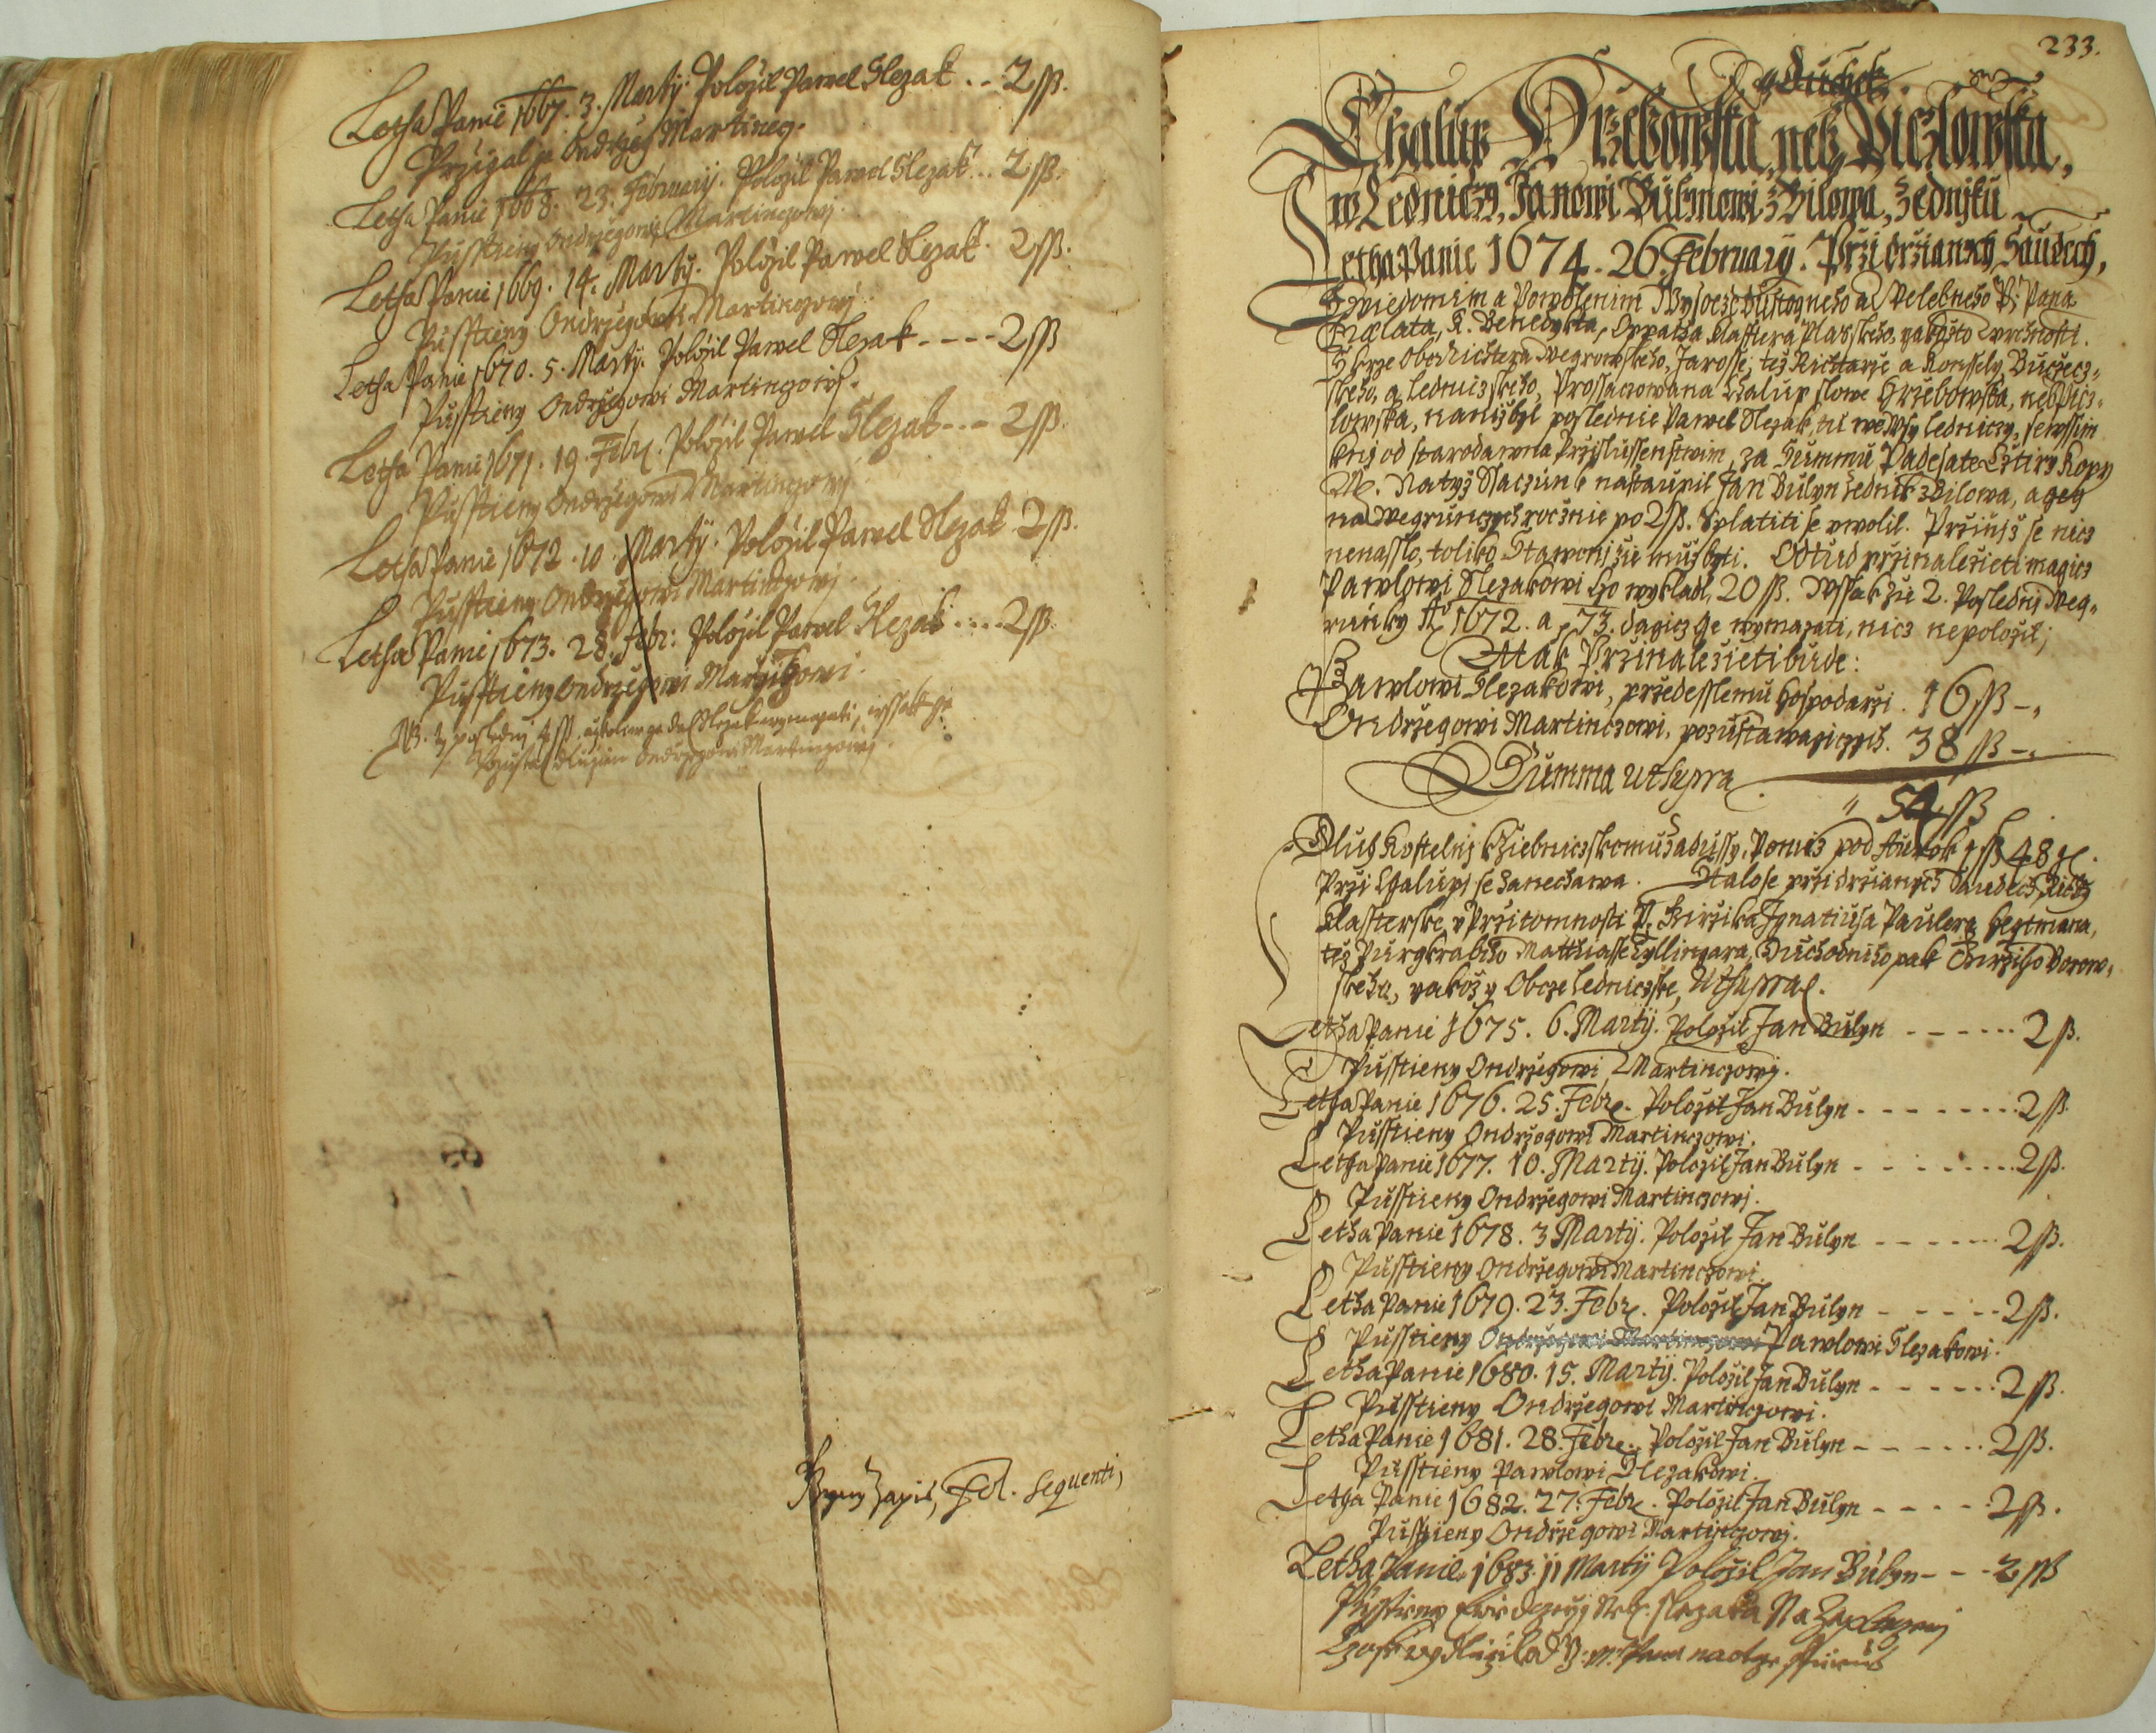 Letha Panie 1667. 3. Marty. Položil Pawel Slezak . . 2 ß.
Przigal je Ondrzeg Martineg.
Letha Panie 1668. 23. February. Položil Pawel Slezak . . 2 ß.
Pusstieny Ondrzegowi Martinczowj.
Letha Panie 1669. 14. Marty. Položil Pawel Slezak. 2 ß.
Pusstieny Ondrzegowi Martinczowj.
Letha Panie 1670. 5. Marty. Položil Pawel Slezak - - - - 2 ß
Pusstieny Ondrzegowi Martinczowj.
Letha Panie 1671. 19. Febr. Položil Pawel Slezak - - - 2 ß.
Pusstieny Ondrzegowi Martinczowj
Letha Panie 1672. 10. Marty. Položil Pawel Slezak 2 ß.
Pusstieny Ondrzegowi Martinczowj.
Letha Panie 1673. 28. Febr: Položil Pawel Slezak . . . . 2 ß.
Pusstieny Ondrzegowi Martinczowi.
NB. poslednj 4 ß. Slezak wymazati, wssak
Ondrzegowi Martinczowj.
Zapis, Fol. sequenti,
233.
Chalup Hrzebowska, neb Piczlowska,
w Ledniczy, Janowi Bulynowi z Bilowa, Zednjku
Letha Panie 1674. 26. February. Przi držianych Saudech,
S wiedomim a Powolenim Wysocze Dustogneho a Welebneho P: Pana
Prælata, K. Benedykta, Oppatha Klasstera Plasskeho, yakožto Wrchnosti.
Skrze Obrichtera Wegrowskeho, Jarosse, též Richtarže a Konssely, Buczecz-
skeho, a Ledniczskeho, Prossaczowana Chalup slowe Hrzebowska, neb Picz-
lowska, na nijž byl poslednie Pawel Slezak, tu we Wsy Ledniczy, se wssim
k nij od starodawna Przislussenstwim, za Summu Padesate Cztirzy Kopy
M. Na tyž Staczunk nastaupil Jan Bulyn Zednik z Bilowa, a gey
na Wegrunczych rocznie po 2 ß. Splatiti se uwolil. Prziniž se nicz
nenasslo, toliko Stawenj zie muž byti. Odtud przinaležieti magicz
Pawlowi Slezakowi czo wykladl, 20 ß. Wssak zie 2. Poslednj Weg-
runky Ao 1672. a 73. dagicz ge wymazati, nicz nepoložil;
Tak Przinaležieti bude:
Pawlowi Slezakowi, przedesslemu hospodarzi. 16 ß -,
Ondrzegowi Martinczowi, pozustawagiczych. 38 ß -.
Summa ut supra
" 54 ß
Dluh Kostelnj k Ziebniczskemu Zadussy, Poniž pod Aurok 1 ß 48 gr.
Przi Chalupi se zanechawa. Stalo se przi držianych Saudech
Klasterske, v Przitomnosti P. Girzika Ignatiusa Paulera Heytmana,
též Purgkrabiho Matthiasse Zyllingara, Duchodniho pak Girziho Borow-
skeho, yakož y Obcze Ledniczske, Ut supra.
Letha Panie 1675. 6. Martij. Položil Jan Bulyn - - - - . . . 2 ß.
Pusstieny Ondrzegowi Martinczowj.
Letha Panie 1676. 25. Febr. Položil Jan Bulyn - - - - - . . . 2 ß.
Pusstieny Ondrzegowi Martinczowi.
Letha Panie 1677. 10. Martij. Položil Jan Bulyn - - - - - . . . 2 ß.
Pusstieny Ondrzegowi Martinczowj.
Letha Panie 1678. 3 Martij. Položil Jan Bulyn - - - - - - 2 ß.
Pusstieny Ondrzegowi Martinczowi.
Letha Panie 1679. 23. Febr. Položil Jan Bulyn - - - - - 2 ß.
Pusstieny Ondrzegowi Martinczowi Pawlowi Slezakowi.
Letha Panie 1680. 15. Martij. Položil Jan Bulyn - - - - - - 2 ß.
Pusstieny Ondrzegowi Martinczowi.
Letha Panie 1681. 28. Febr. Položil Jan Bulyn - - - - . . . 2 ß.
Pusstieny Pawlowi Slezakowi.
Letha Panie 1682. 27. Febr. Položil Jan Bulyn - - - - 2 ß.
Pusstieny Ondrzegowi Martinczowj.
Letha Panie 1683. 11 Martij Položil Jan Bulyn - - - 2 ß
Pusstieny Slezaka Na